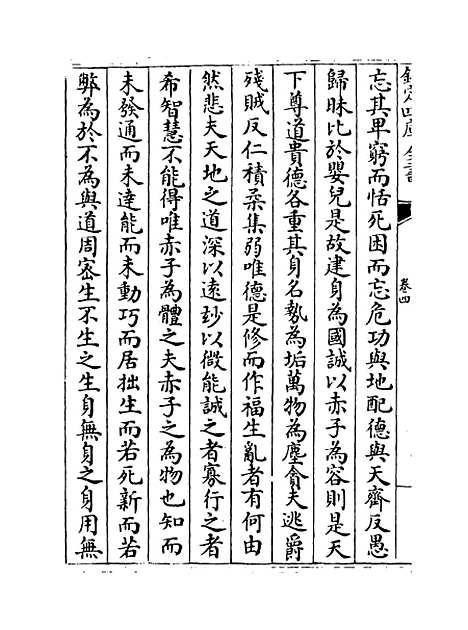 欽定四庫全書
卷四
忘其卑窮而恬死困而忘危功與地配德與天齊反愚
歸昧比於嬰兒是故建身為國誠以赤子為容則是天
下尊道貴德各重其身名勢為垢萬物為塵貪夫逃爵
殘賊反仁積柔集弱唯德是修而作福生亂者有何由
然悲夫天地之道深以遠玅以微能誠之者寡行之者
希智慧不能得唯赤子為體之夫赤子之為物也知而
未發通而未達能而未動巧而居拙生而若死新而若
弊為於不為與道周密生不生之生身無身之身用無